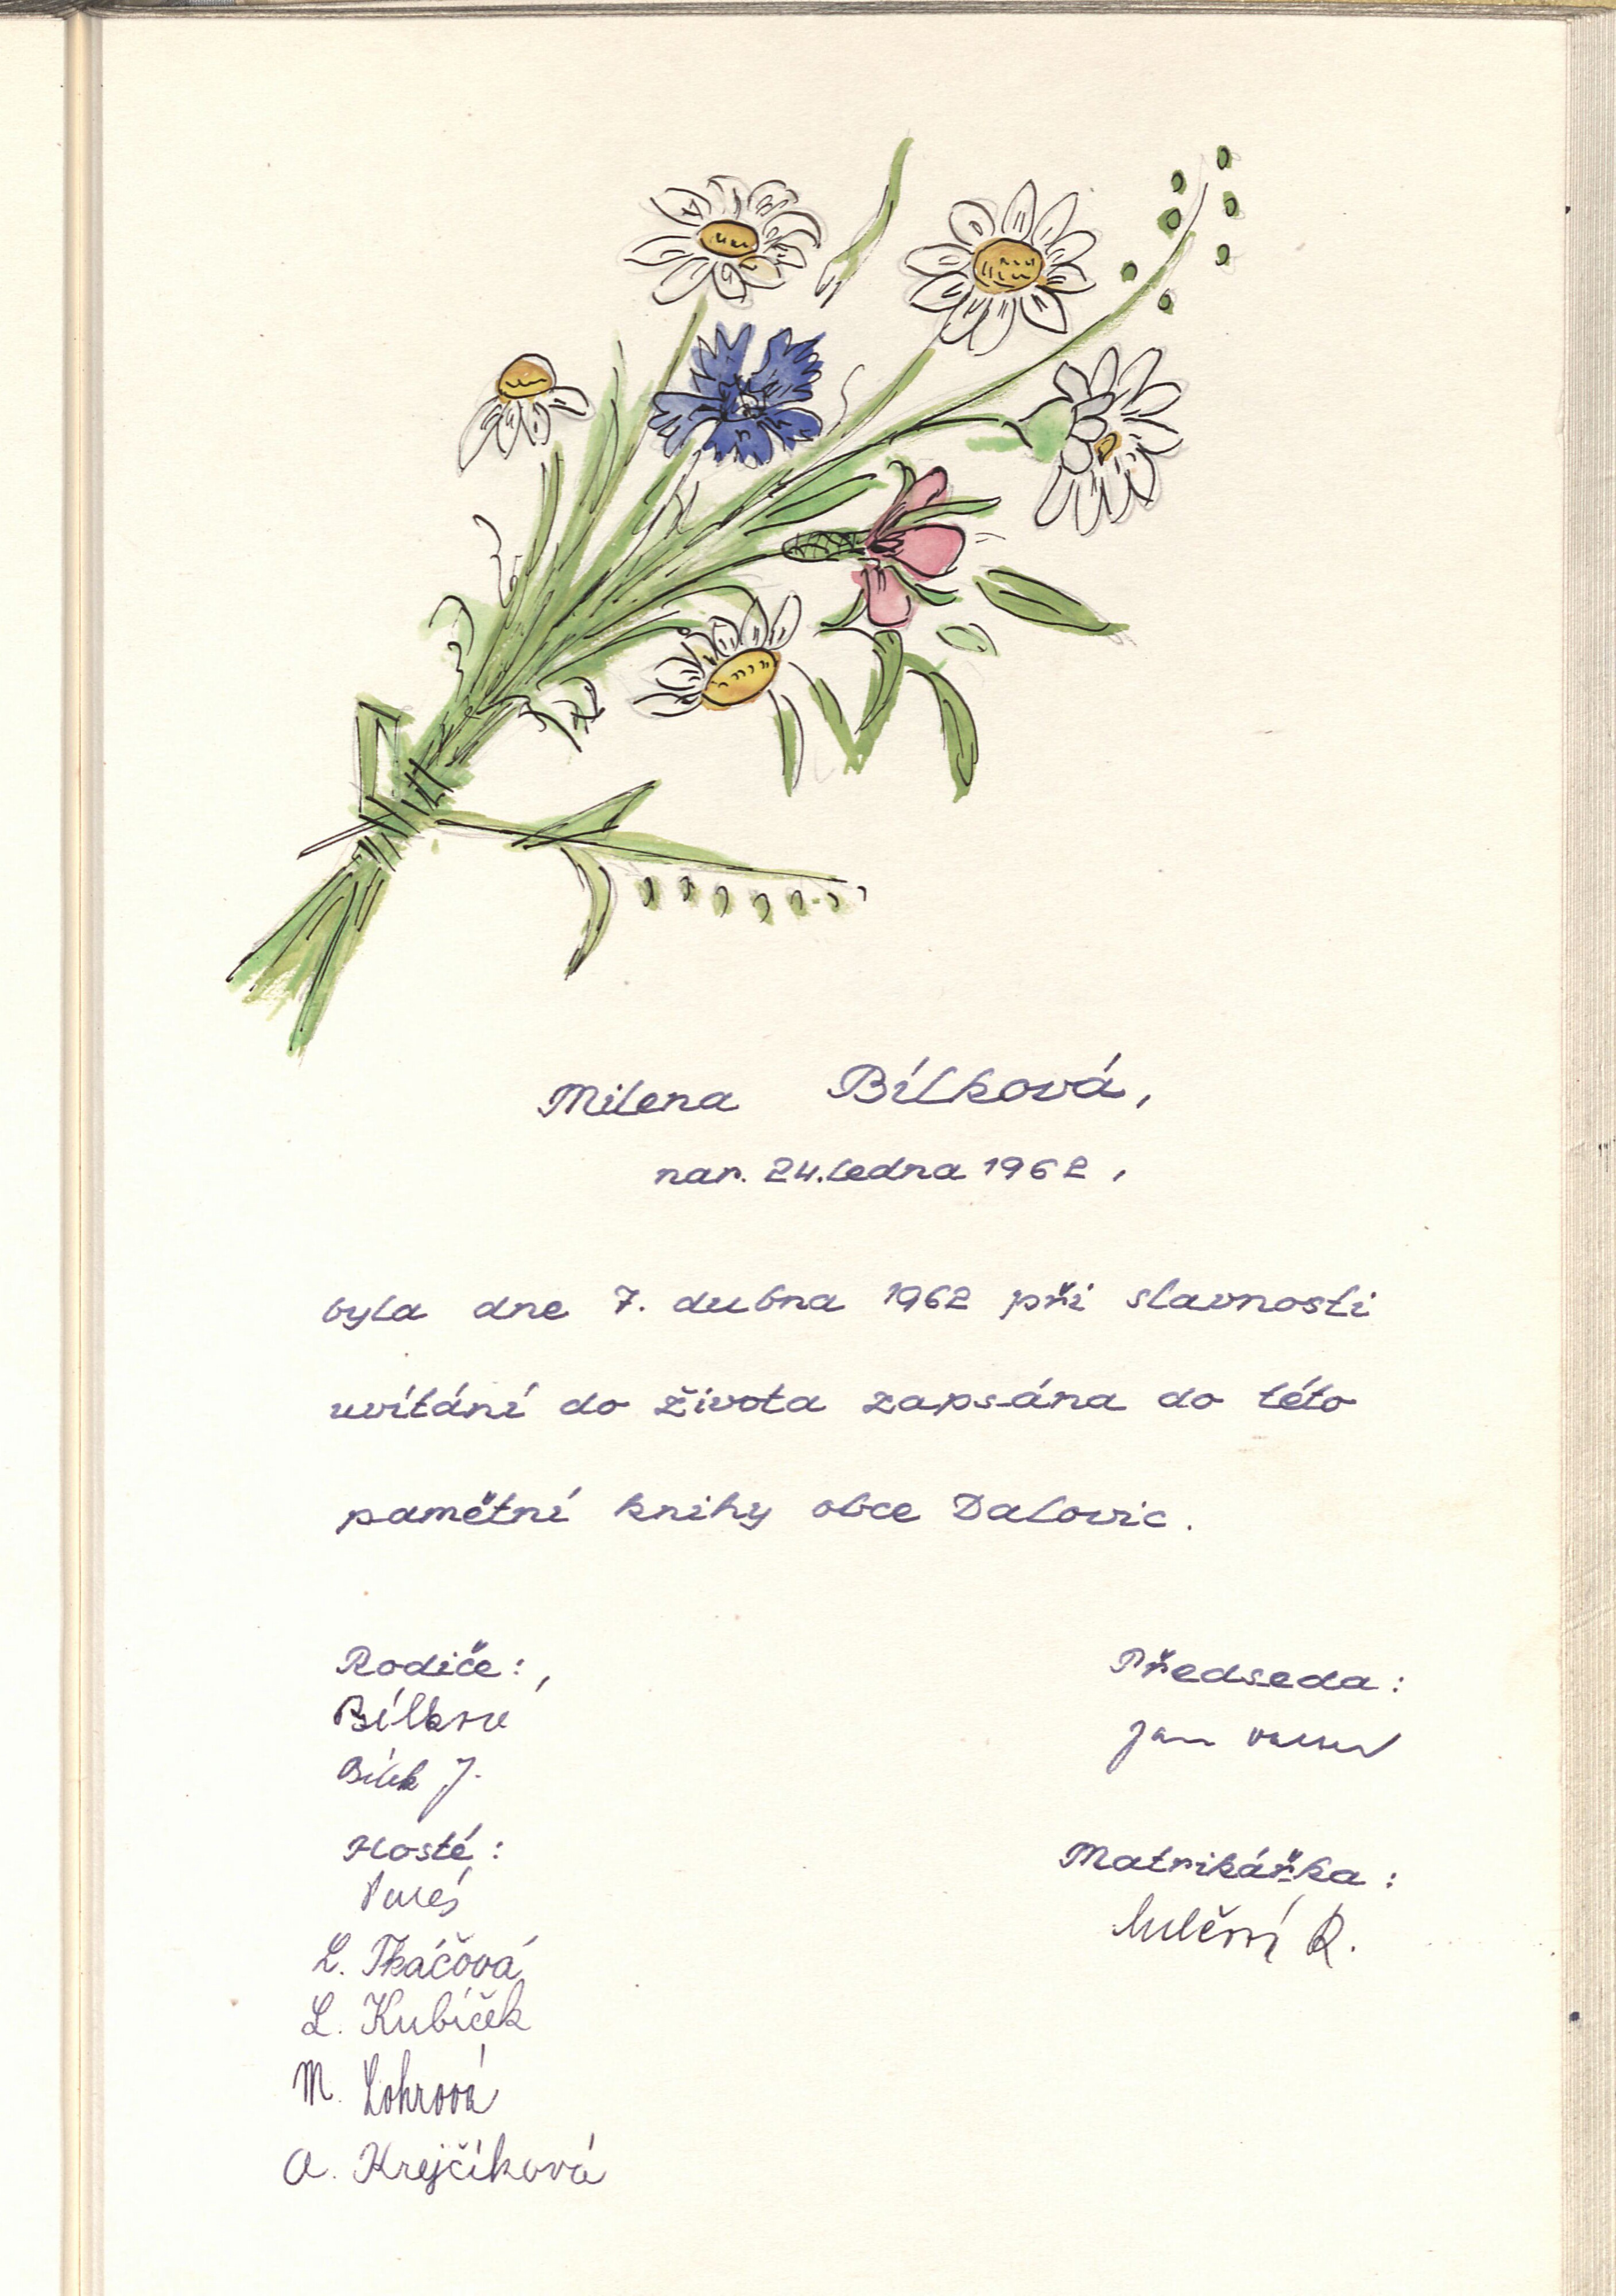 Milena Bílková,
nar. 24. ledna 1962,
byla dne 7. dubna 1962 při slavnosti
uvítání do života zapsána do této
pamětní knihy obce Dalovic.
Rodiče:,
Bílkov
Bílek J.
Hosté:
L. Tkáčová
L. Kubíček
M. Lohrová
A. Krejčíková
Předseda:
Jan
Matrikářka:
R.